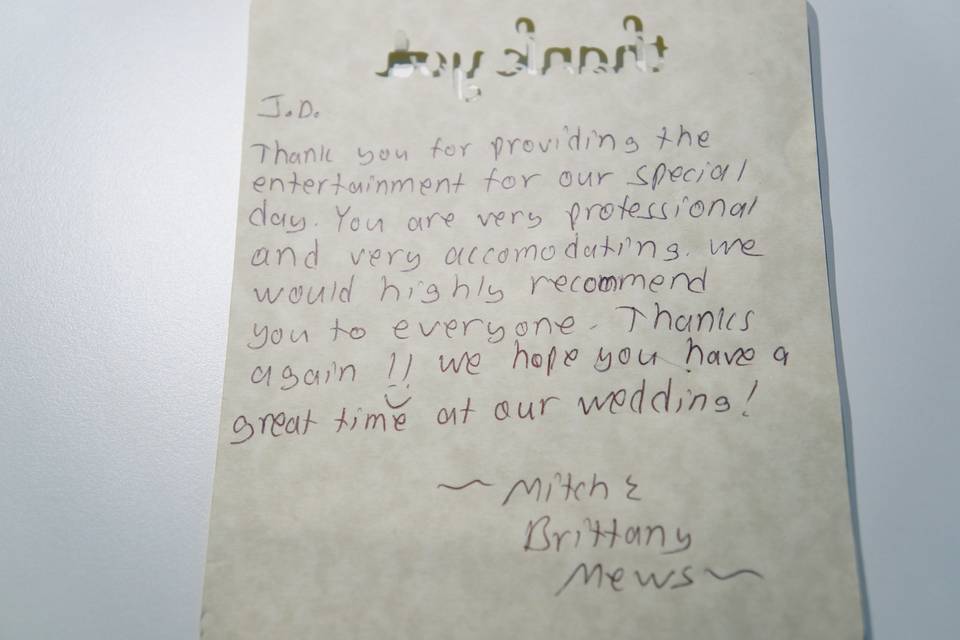 thank you
J.D.
Thank you for providing the
entertainment for our special
day. You are very professional
and very accomodating. We
would highly recommend
you to everyone. Thanks
again !! We hope you have a
great time at our wedding!
~ Mitch &
Brittany
Mews ~